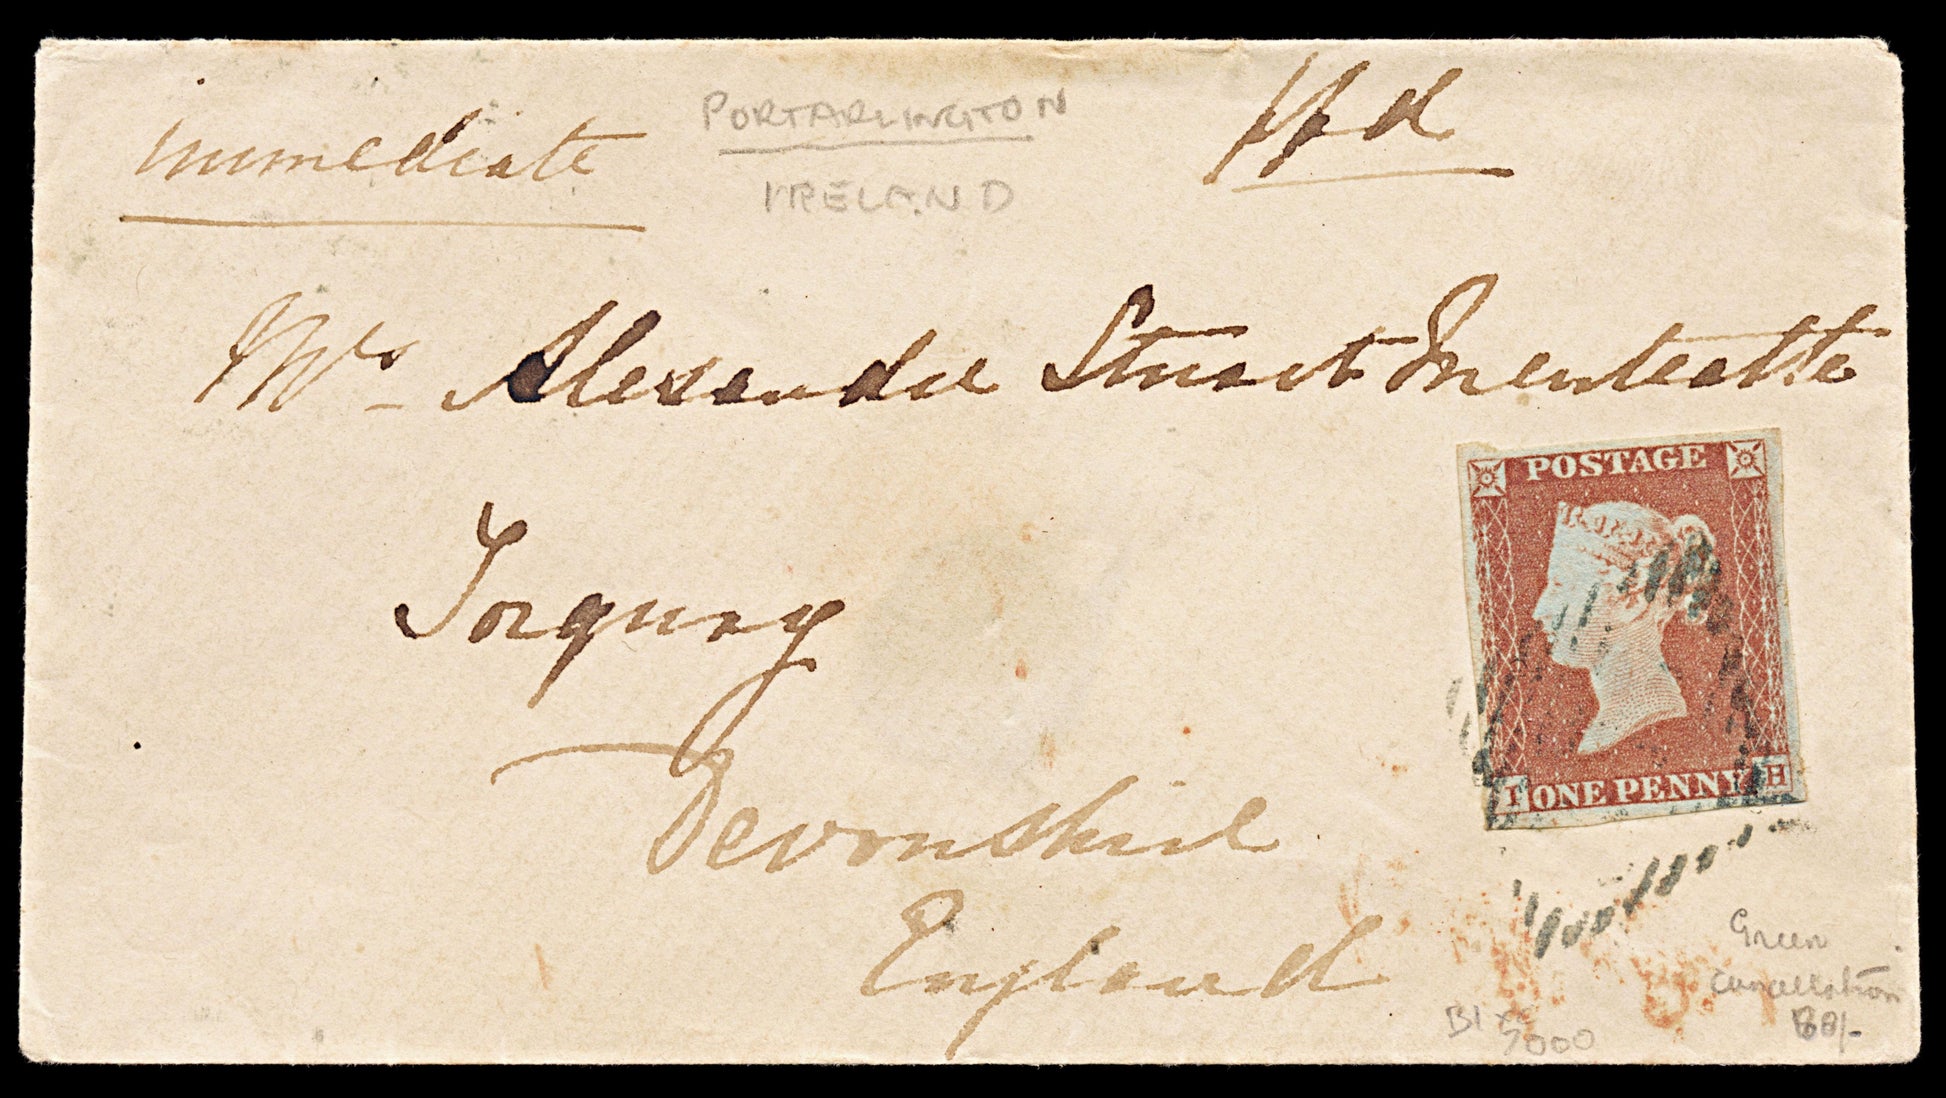 immediate
PORTARLINGTON
IRELAND
Ppd
Mrs Alexander Stuart Menteath
Torquay
Devonshire
England
POSTAGE
I ONE PENNY H
Green
cancellation